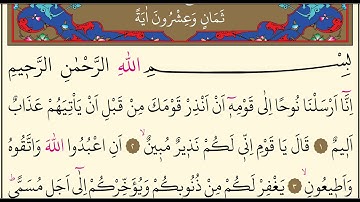 ثَمَانٍ وَعِشْرُونَ اٰيَةً
بِسْمِ اللّٰهِ الرَّحْمٰنِ الرَّحِيمِ
اِنَّٓا اَرْسَلْنَا نُوحًا اِلٰى قَوْمِهٖٓ اَنْ اَنْذِرْ قَوْمَكَ مِنْ قَبْلِ اَنْ يَأْتِيَهُمْ عَذَابٌ
اَلٖيمٌ ﴿١﴾ قَالَ يَا قَوْمِ اِنّٖى لَكُمْ نَذٖيرٌ مُبٖينٌۙ ﴿٢﴾ اَنِ اعْبُدُوا اللّٰهَ وَاتَّقُوهُ
وَاَطٖيعُونِۙ ﴿٣﴾ يَغْفِرْ لَكُمْ مِنْ ذُنُوبِكُمْ وَيُؤَخِّرْكُمْ اِلٰٓى اَجَلٍ مُسَمًّىۜ